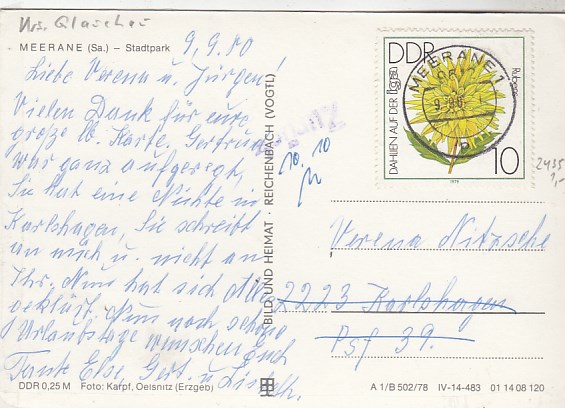 Krs. Glauchau
MEERANE (Sa.) – Stadtpark
9.9.80
Liebe Verena u. Jürgen!
Vielen Dank für eure
große b. Karte. Gertrud
war ganz aufgeregt,
Sie hat eine Nichte in
Karlshagen, Sie schreibt
an mich u. nicht an
Ihr. Nun hat sich alles
geklärt. Nun noch schöne
Urlaubstage wünschen Euch
Tante Else, Gert. u.
DDR 0,25 M Foto: Karpf, Oelsnitz (Erzgeb)
BILD UND HEIMAT · REICHENBACH (VOGTL)
Zurück
10.10
DDR
DAHLIEN AUF DER iga
10
1979
MEERANE 1
9.-9.80
2435
1,-
Verena Nitzsche
2223 Karlshagen
Psf 39.
A 1/B 502/78 IV-14-483 01 14 08 120